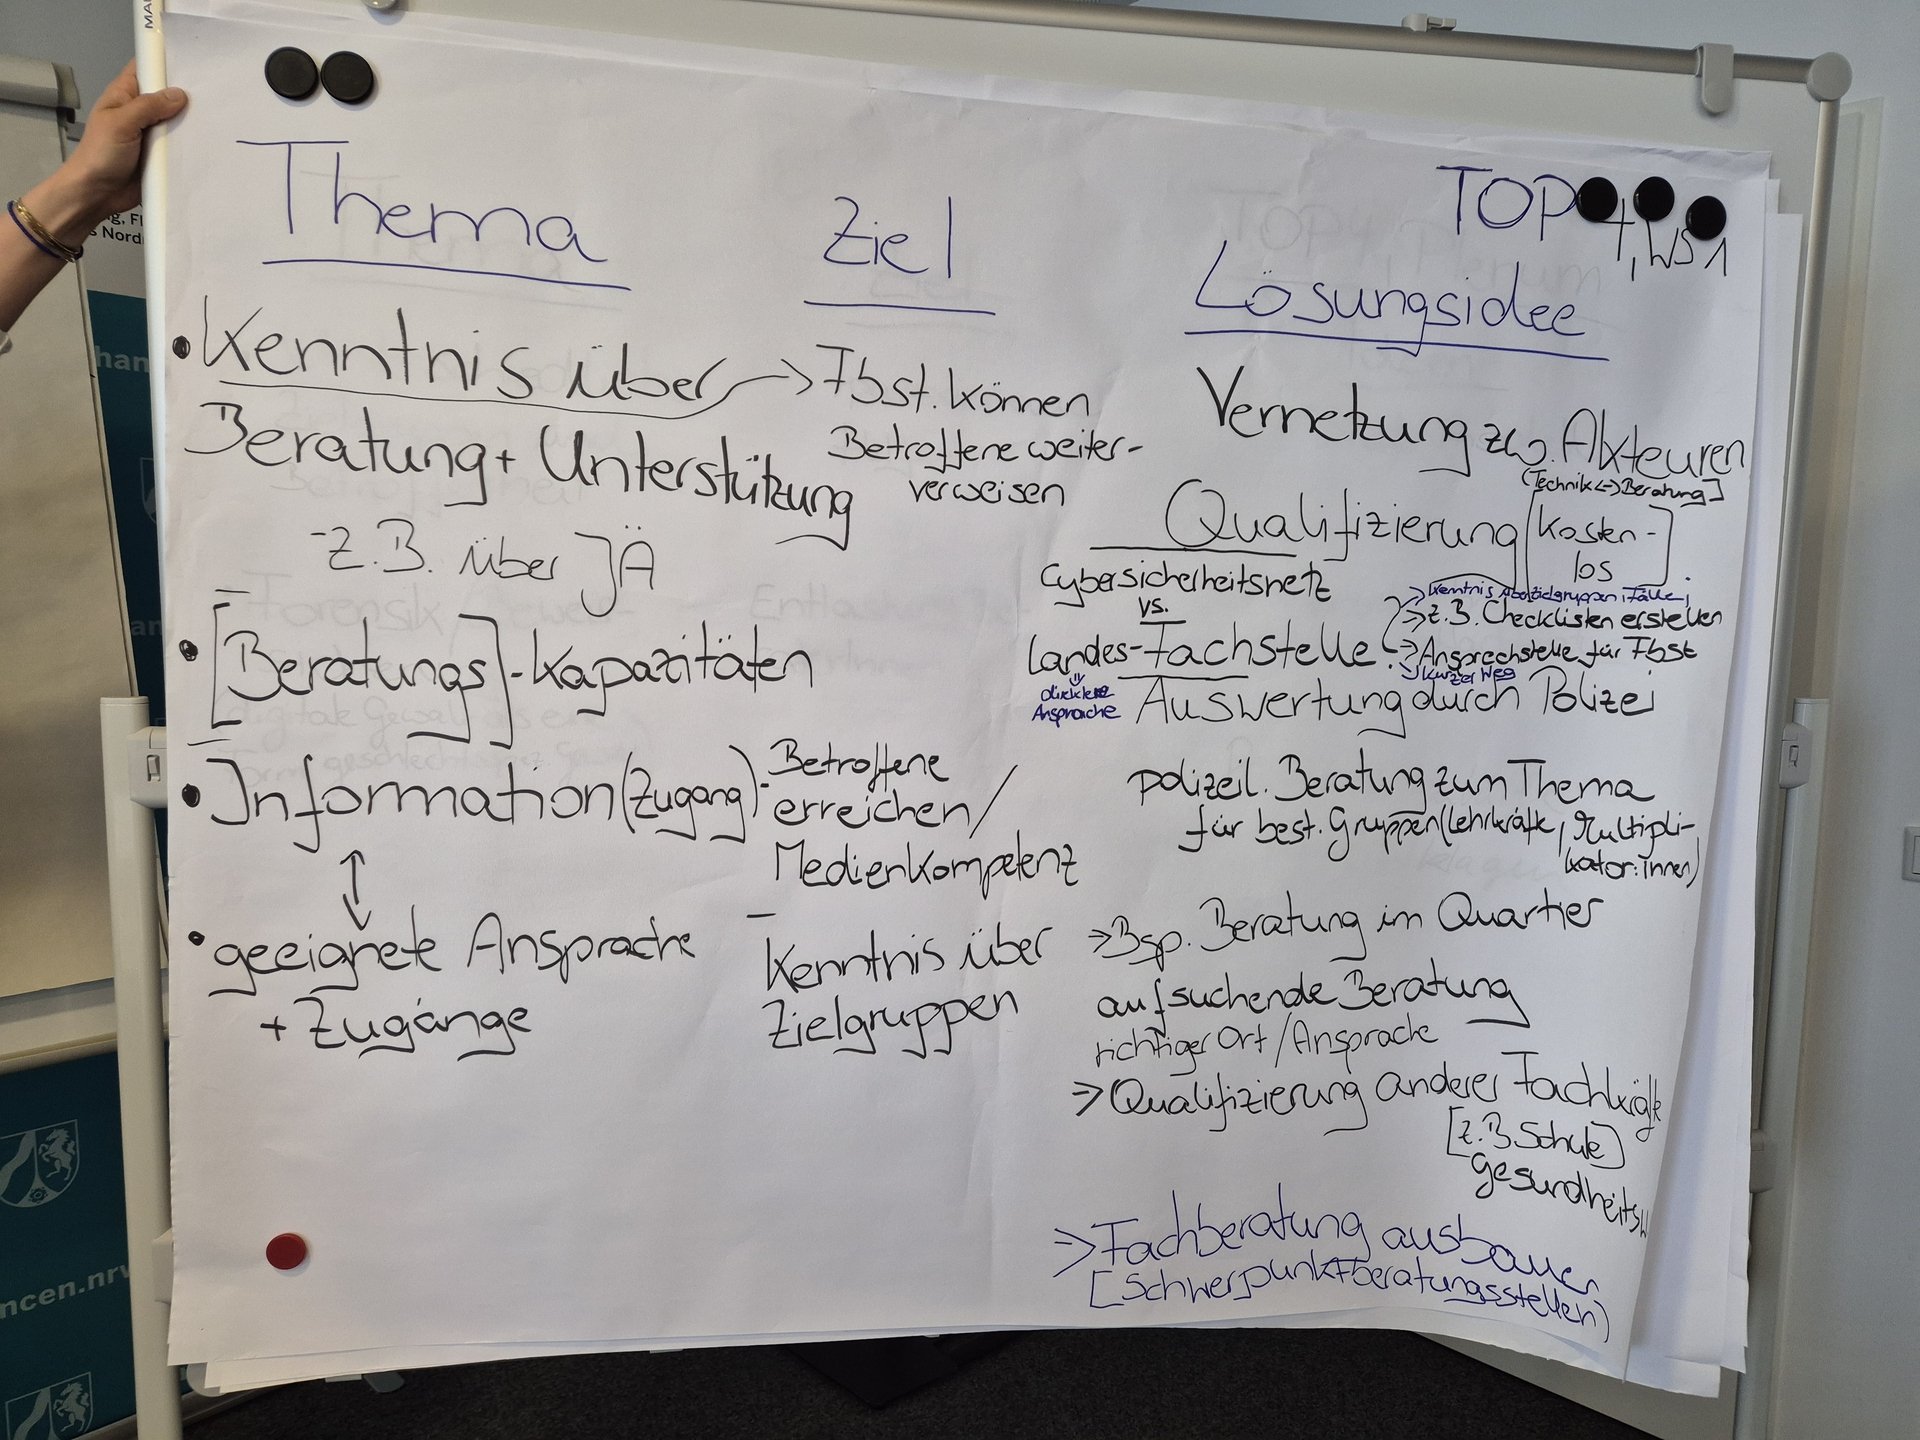 TOP 4, WS 1
Thema
Ziel
Lösungsidee
• Kenntnis über
Beratung + Unterstützung
- z.B. über JÄ
• [Beratungs]-Kapazitäten
• Information (Zugang)
• geeignete Ansprache
+ Zugänge
→ Fbst. können
Betroffene weiter-
verweisen
- Betroffene
erreichen /
Medienkompetenz
-
Kenntnis über
Zielgruppen
Vernetzung zw. Akteuren
[Technik <-> Beratung]
Qualifizierung [Kosten-
los]
Cybersicherheitsnetz
vs.
Landes-Fachstelle
direktere
Ansprache
-> Kenntnis über Zielgruppen, Fälle,
-> z.B. Checklisten erstellen
-> Ansprechstelle für Fbst
-> kurzer Weg
Auswertung durch Polizei
polizeil. Beratung zum Thema
für best. Gruppen (Lehrkräfte, Multipli-
kator:innen)
=> Bsp. Beratung im Quartier
aufsuchende Beratung
richtiger Ort / Ansprache
=> Qualifizierung anderer Fachkräfte
[z.B. Schule]
Gesundheitsw
=> Fachberatung ausbauen
[Schwerpunktberatungsstellen)
ncen.nrw